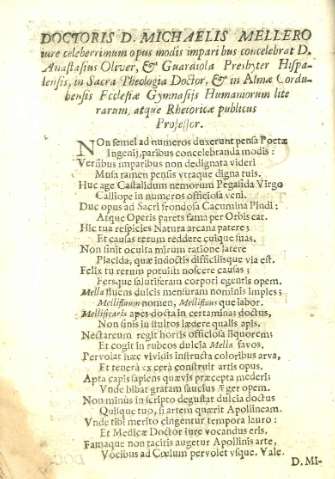 DOCTORIS D. MICHAELIS MELLERO
iure celeberrimum opus modis imparibus concelebrat D.
Anastasius Oliver, & Guardiola Presbyter Hispa-
lensis, in Sacra Theologia Doctor, & in Alma Cordu-
bensis Ecclesiæ Gymnasijs Humaniorum lite
rarum, atque Rhetoricæ publicus
Professor.
NOn semel ad numeros duxerunt pensa Poetæ
Ingenij, paribus concelebranda modis:
Versibus imparibus non dedignata videri
Musa tamen pensis vtraque digna tuis.
Huc age Castalidum nemorum Pegasida Virgo
Calliope in numeros officiosa veni.
Duc opus ad sacri frondosa Cacumina Pindi:
Atque Operis paret fama per Orbis eat.
Hic tua respicies Natura arcana patere;
Et causas rerum reddere cuique suas,
Non sinit occulta mirum ratione latere
Placida, quæ indoctis difficilisque via est.
Felix tu rerum potuisti noscere causas;
Fersque salutiferam corpori egentis opem.
Mella fluens dulcis mensuram nominis imples;
Mellifluum nomen, Mellifluus que labor.
Mellificaris apes docta in certamina doctus,
Non sinis inuitos lædere qualis apis.
Nectareum regit horris officiosa liquorem;
Et cogit in rubeos dulcia Mella favos.
Pervolat hæc vividis instructa coloribus arva,
Et tenera ex cera construit artis opus.
Apta capis sapiens quævis præcepta mederi
Vnde bibat gratam saucius Æger opem.
Non minus in scripto degustat dulcia doctus
Quisque tuo, si artem quærit Apollineam.
Vnde tibi merito cingentur tempora lauro:
Et Medicæ Doctor iure vocandus eris,
Famaque non tacitis augetur Apollinis arte,
Vocibus ad Cœlum pervolet vsque. Vale.
D. MI-